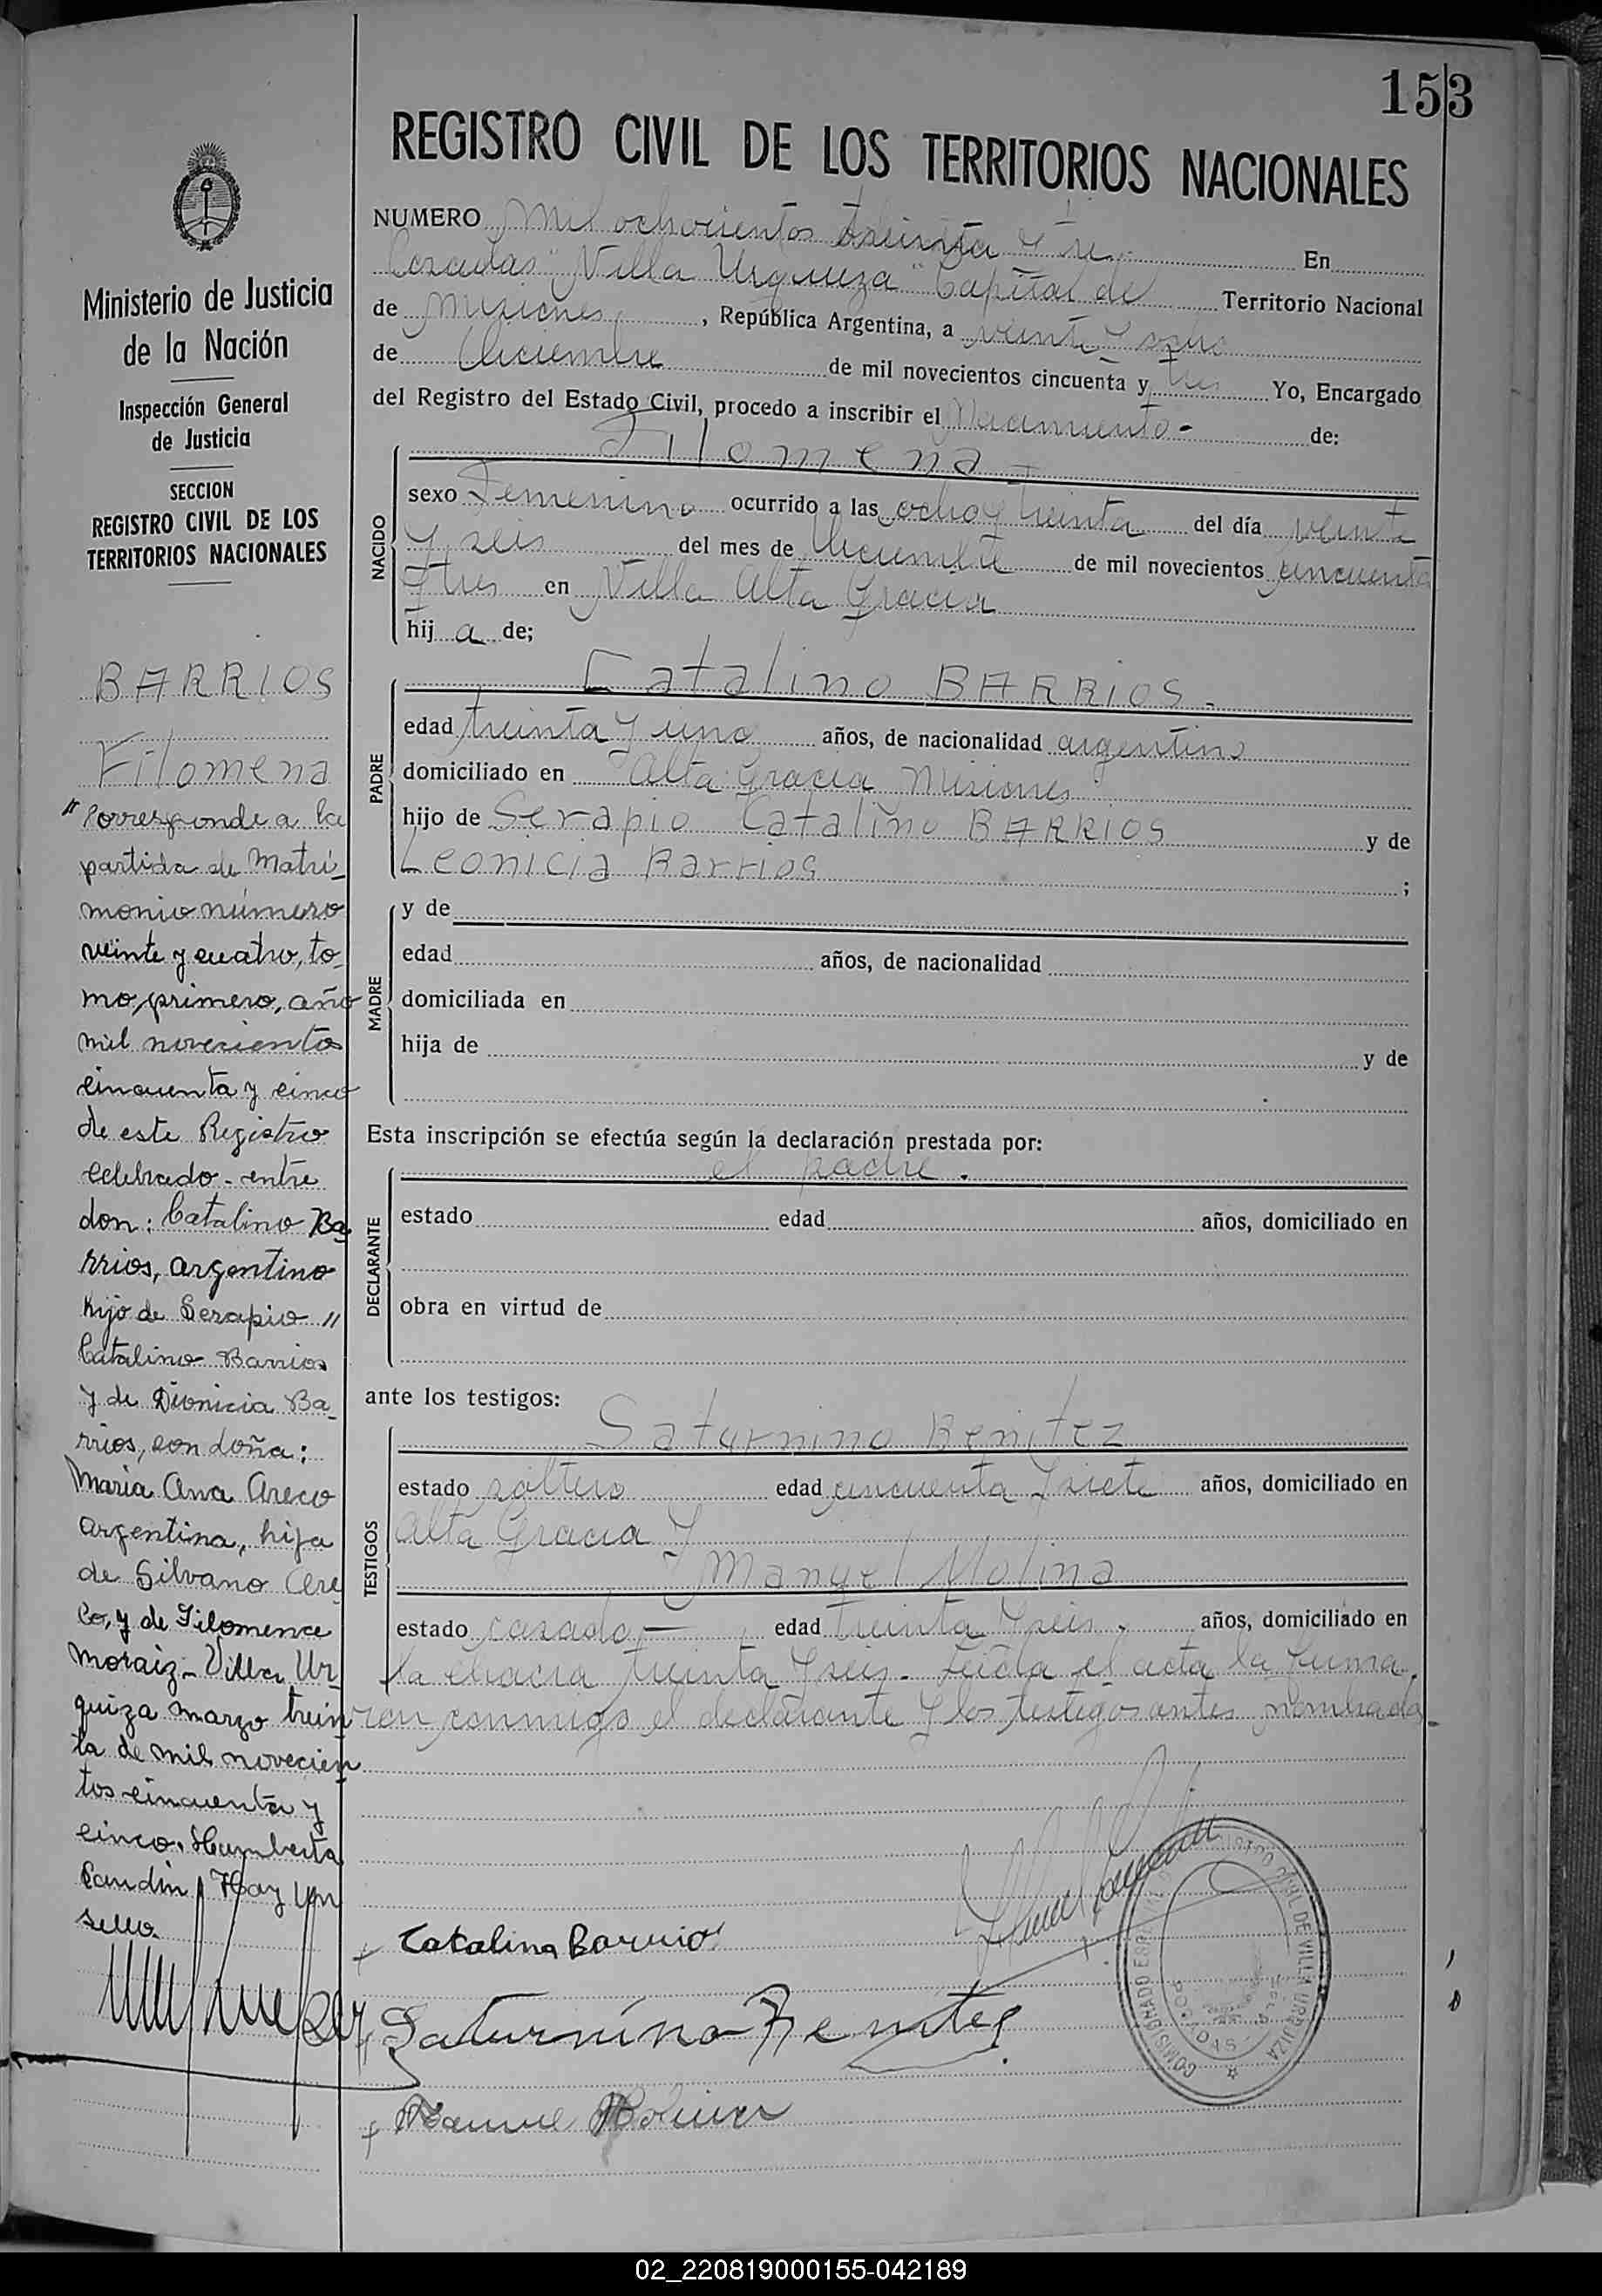 153
REGISTRO CIVIL DE LOS TERRITORIOS NACIONALES
NUMERO Mil ochocientos treinta y tres En
Posadas "Villa Urquiza" Capital de Territorio Nacional
de Misiones, República Argentina, a veinte y ocho
de Diciembre de mil novecientos cincuenta y tres Yo, Encargado
del Registro del Estado Civil, procedo a inscribir el Nacimiento - de:
NACIDO
Filomena
sexo Femenino ocurrido a las ocho y treinta del día veinte
y seis del mes de Diciembre de mil novecientos cincuenta
y tres en Villa Alta Gracia
hij a de;
PADRE
Catalino BARRIOS.
edad treinta y uno años, de nacionalidad argentino
domiciliado en Alta Gracia Misiones
hijo de Serapio Catalino BARRIOS y de
Leonicia Barrios ;
MADRE
y de
edad años, de nacionalidad
domiciliada en
hija de y de
Esta inscripción se efectúa según la declaración prestada por:
el padre.
DECLARANTE
estado edad años, domiciliado en
obra en virtud de
ante los testigos:
TESTIGOS
Saturnino Benitez
estado soltero edad cincuenta y siete años, domiciliado en
Alta Gracia y
Manuel Molina
estado casado - edad treinta y seis. años, domiciliado en
la chacra treinta y seis. Leída el acta la firma.
ron conmigo el declarante y los testigos antes nombrados
Catalino Barrios
Saturnino Benitez
Manuel Molina
COMISIONADO REGISTRO CIVIL DE VILLA URQUIZA
POSADAS
Ministerio de Justicia
de la Nación
Inspección General
de Justicia
SECCION
REGISTRO CIVIL DE LOS
TERRITORIOS NACIONALES
BARRIOS
Filomena
"Corresponde a la
partida de Matri-
monio número
veinte y cuatro, to-
mo, primero, año
mil novecientos
cincuenta y cinco
de este Registro
celebrado - entre
don: Catalino Ba
rrios, argentino
hijo de Serapio "
Catalino Barrios
y de Dionicia Ba-
rrios, con doña:
Maria Ana Areco
argentina, hija
de Silvano Are
co, y de Filomena
Moraiz - Villa Ur
quiza marzo trein
ta de mil novecien
tos cincuenta y
cinco. Humberta
Candin Hay un
sello.
02_220819000155-042189